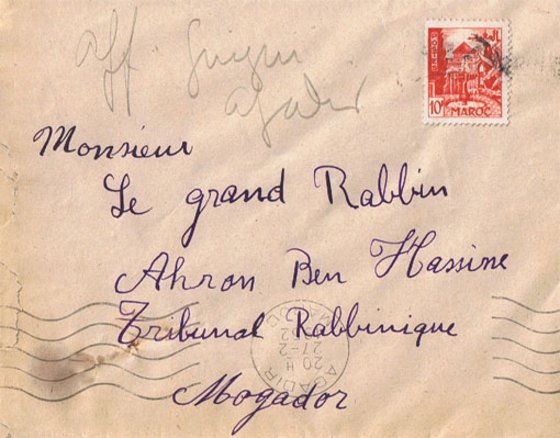 Aff. Guigui
Agadir
10F MAROC
Monsieur
Le grand Rabbin
Ahron Ben Hassine
Tribunal Rabbinique
Mogador
AGADIR
20 H
27-2
MAROC